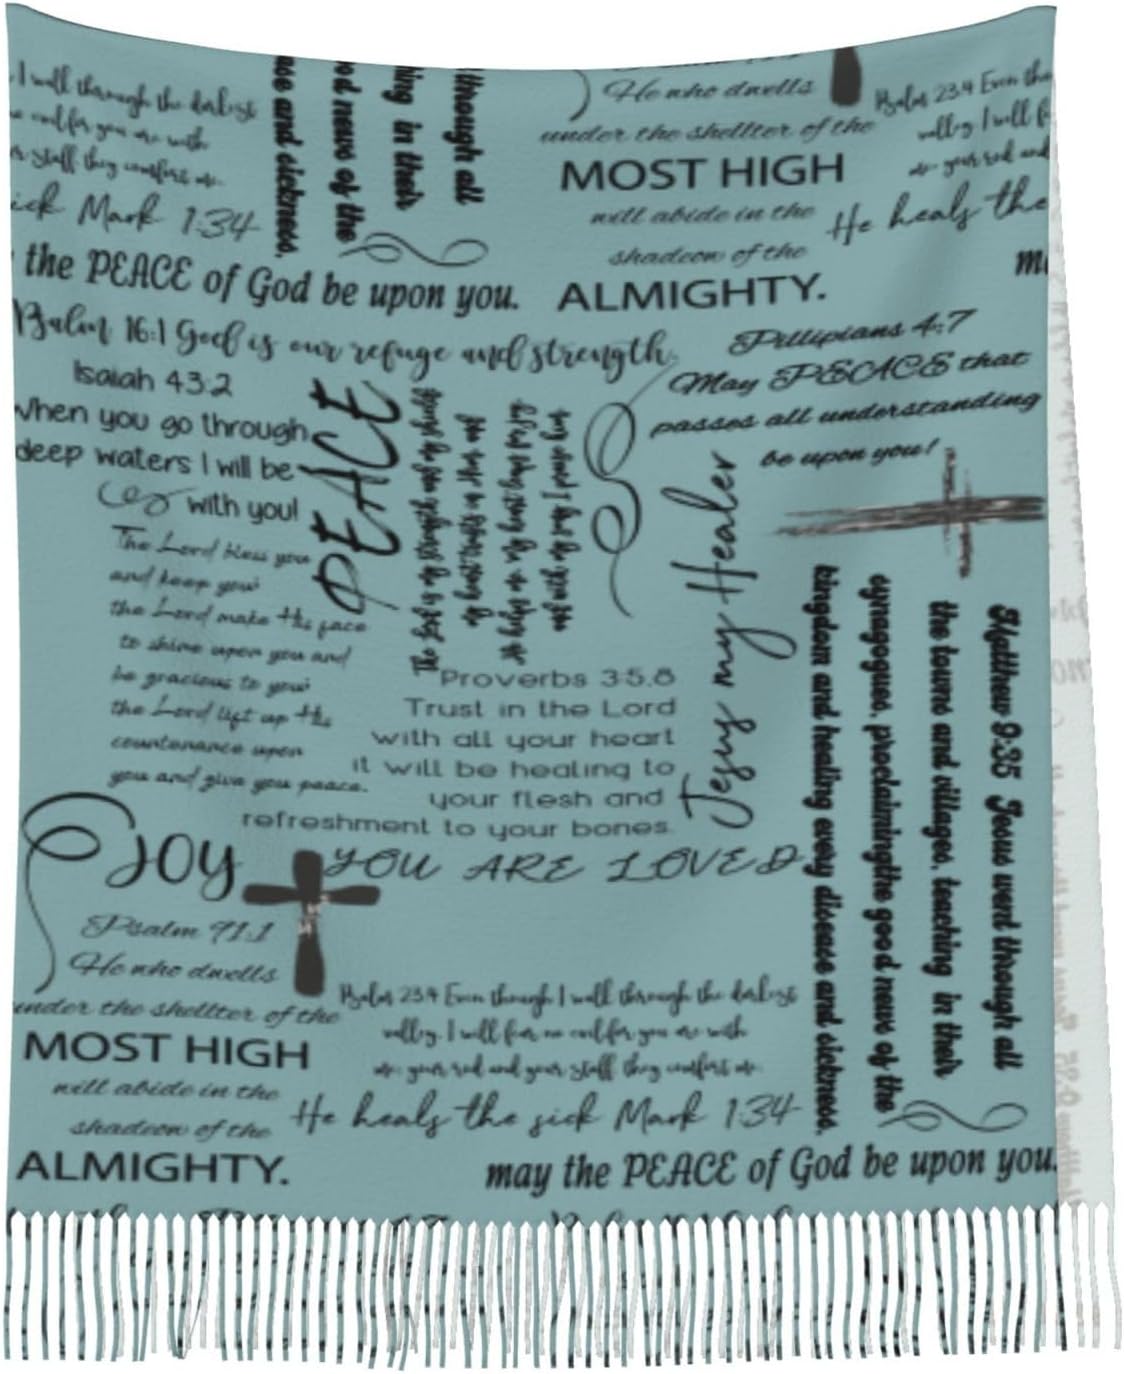 I walk through the darkest
evil for you are with
r staff they comfort me.
ick Mark 1:34
the PEACE of God be upon you.
ase and sickness.
od news of the
hing in their
through all
He who dwells
under the shellter of the
MOST HIGH
will abide in the
shadeow of the
ALMIGHTY.
Psalm 23:4 Even tho
valley, I will f
me: your rod and
He heals the
m
Psalm 16:1 God is our refuge and strength.
Isaiah 43:2
When you go through
deep waters I will be
with you!
PEACE
Pillipians 4:7
May PEACE that
passes all understanding
be upon you!
The Lord bless you
and keep you;
the Lord make His face
to shine upon you and
be gracious to you;
the Lord lift up His
countenance upon
you and give you peace.
Proverbs 3:5,8
Trust in the Lord
with all your heart
it will be healing to
your flesh and
refreshment to your bones.
Jesus my Healer
Matthew 9:35 Jesus went through all
the towns and villages, teaching in their
synagogues, proclaimingthe good news of the
kingdom and healing every disease and sickness.
JOY
YOU ARE LOVED
Psalm 91:1
He who dwells
under the shellter of the
MOST HIGH
will abide in the
shadeow of the
ALMIGHTY.
Psalm 23:4 Even though I walk through the darkest
valley, I will fear no evil for you are with
me: your rod and your staff they comfort me.
He heals the sick Mark 1:34
may the PEACE of God be upon you.